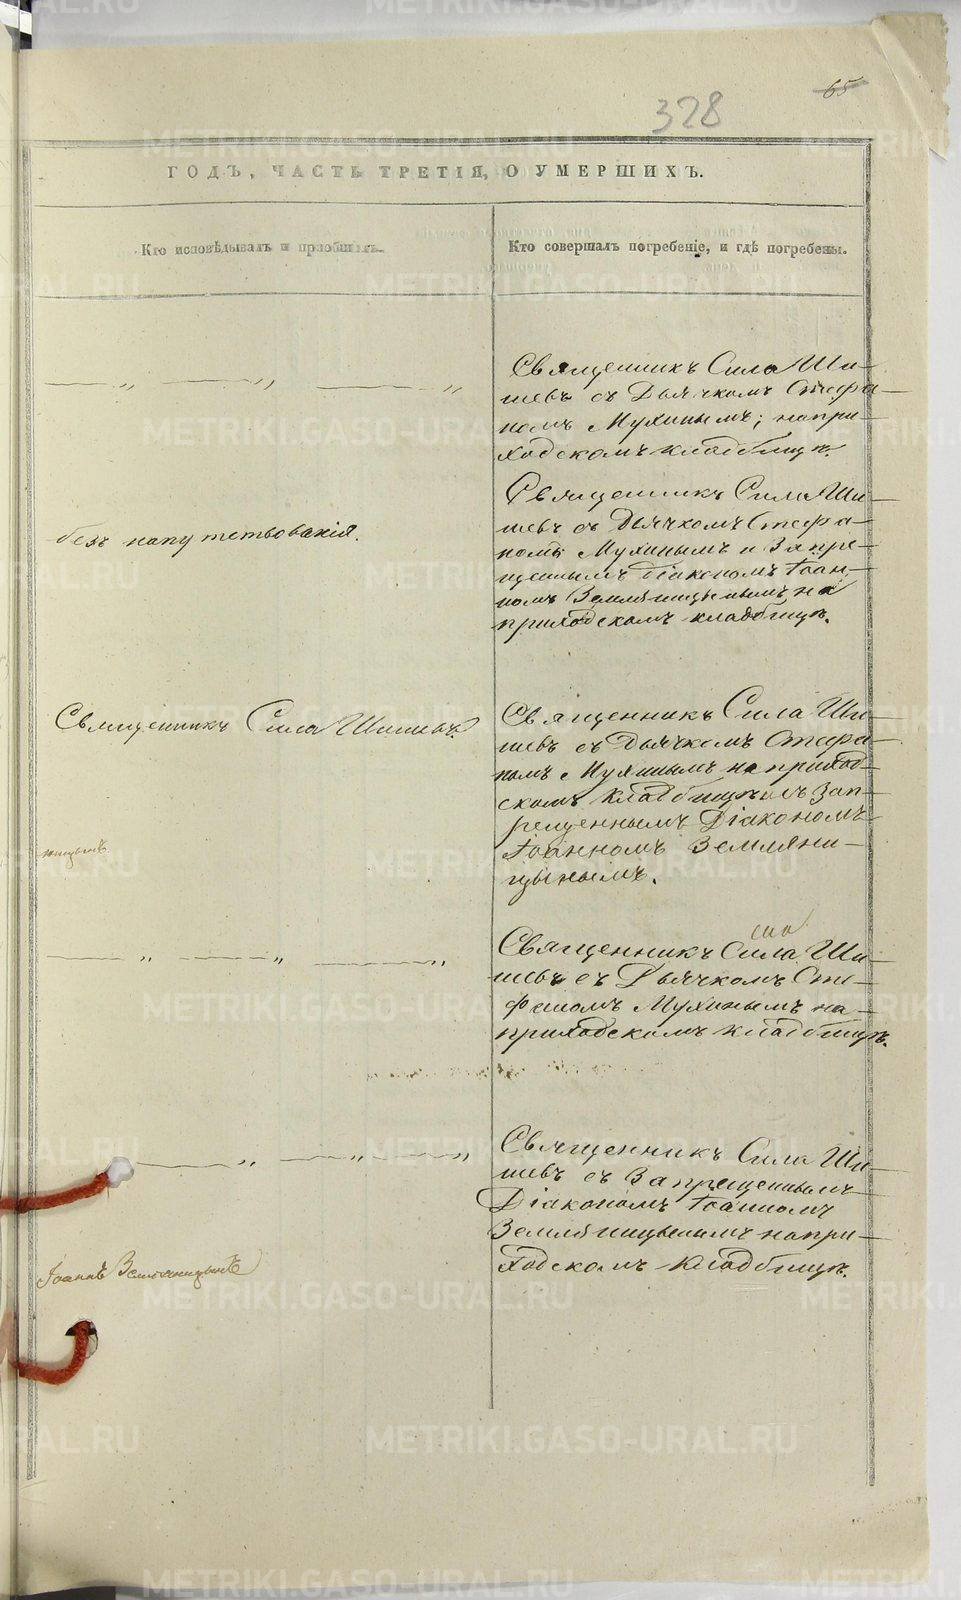 65
328
ГОДЪ, ЧАСТЬ ТРЕТІЯ, О УМЕРШИХЪ.
Кто исповѣдывалъ и пріобщалъ.
Кто совершалъ погребеніе, и гдѣ погребены.
Священникъ Сила Ши-
шевъ съ Дьячкомъ Стефа-
номъ Мухинымъ; на при-
ходскомъ кладбищѣ.
безъ напутствованія.
Священникъ Сила Ши-
шевъ съ Дьячкомъ Стефа-
номъ Мухинымъ и Запре-
щеннымъ Діакономъ Іоан-
номъ Земляницынымъ на
приходскомъ кладбищѣ.
Священникъ Сила Шишевъ.
Священникъ Сила Ши-
шевъ съ Дьячкомъ Стефа-
номъ Мухинымъ на приход-
скомъ кладбищѣ и съ Зап-
рещеннымъ Діакономъ
Іоанномъ Земляни-
цынымъ.
ницынъ
Священникъ Сила Ши-
шевъ съ Дьячкомъ Сте-
фаномъ Мухинымъ на
приходскомъ кладбищѣ.
Священникъ Сила Ши-
шевъ съ Запрещеннымъ
Діакономъ Іоанномъ
Земляницынымъ на при-
ходскомъ кладбищѣ.
Іоаннъ Земляницынъ
METRIKI.GASO-URAL.RU